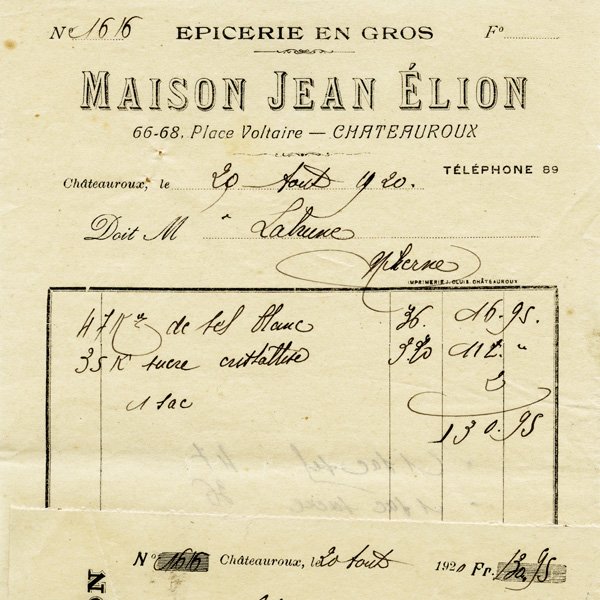 No 1616 EPICERIE EN GROS Fo
MAISON JEAN ÉLION
66-68, Place Voltaire — CHATEAUROUX
TÉLÉPHONE 89
Châteauroux, le 20 Aout 1920.
Doit M " Labrune
IMPRIMERIE J. CLUIS CHÂTEAUROUX
47 Kos de sel blanc 36. 16.95.
35 K sucre cristallisé 320 112. "
1 sac 2
130.95
No 1616 Châteauroux, le 20 Aout 1920 Fr. 130,95
ON